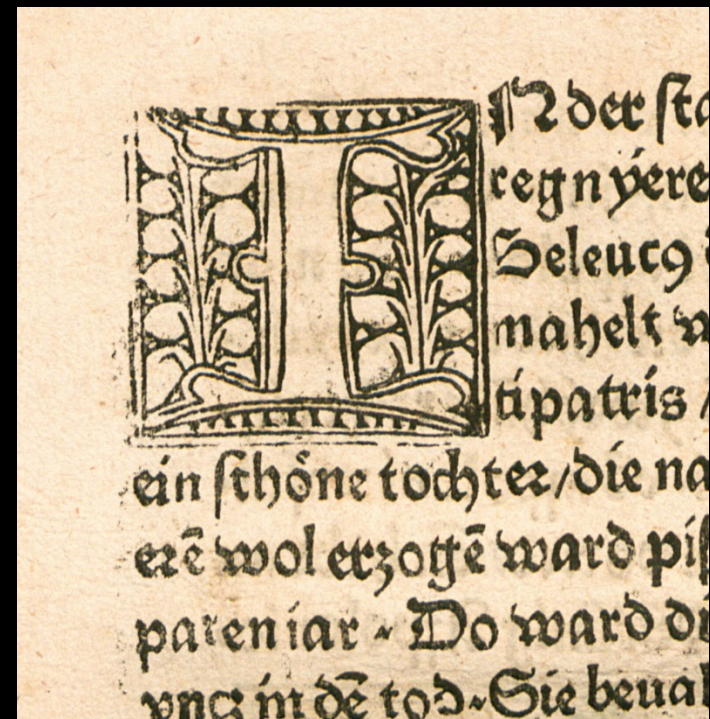 IN der sta
regnÿere
Seleucꝯ
nahelt
tipatris /
ein schöne tochter/die na
erē wol erzogē ward piſ
paren iar - Do ward di
vncz in dē tod - Sie beual